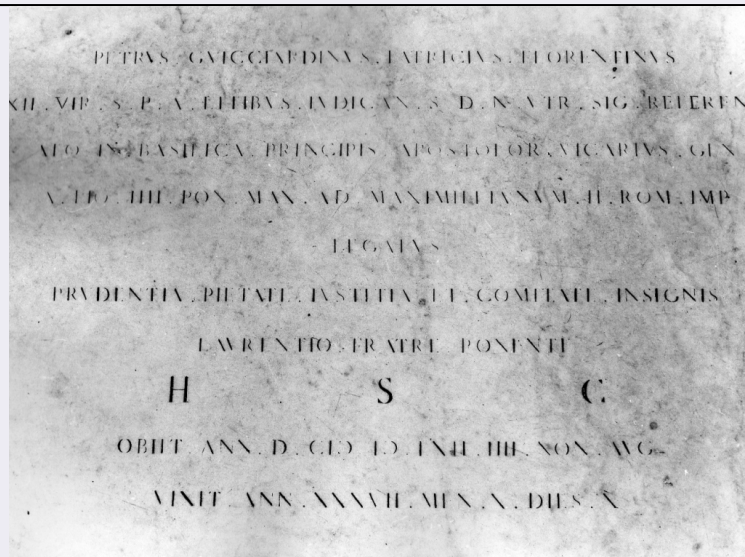 PETRVS . GVICCIARDINVS . PATRICIVS . FLORENTINVS
XII . VIR . S . P . A . LITIBVS . IVDICAN . S . D . N . VTR . SIG . REFEREN
IN . BASILICA . PRINCIPIS . APOSTOLOR . VICARIVS . GEN
A . PIO . IIII . PON . MAX . AD . MAXIMILIANVM . II . ROM . IMP
LEGATVS
PRVDENTIA . PIETATE . IVSTITIA . ET . COMITATE . INSIGNIS
LAVRENTIO . FRATRE . PONENTE
H S C
OBIIT . ANN . D . CIƆ . IƆ . LXII . IIII . NON . AVG
VIXIT . ANN . XXXVII . MEN . X . DIES . X